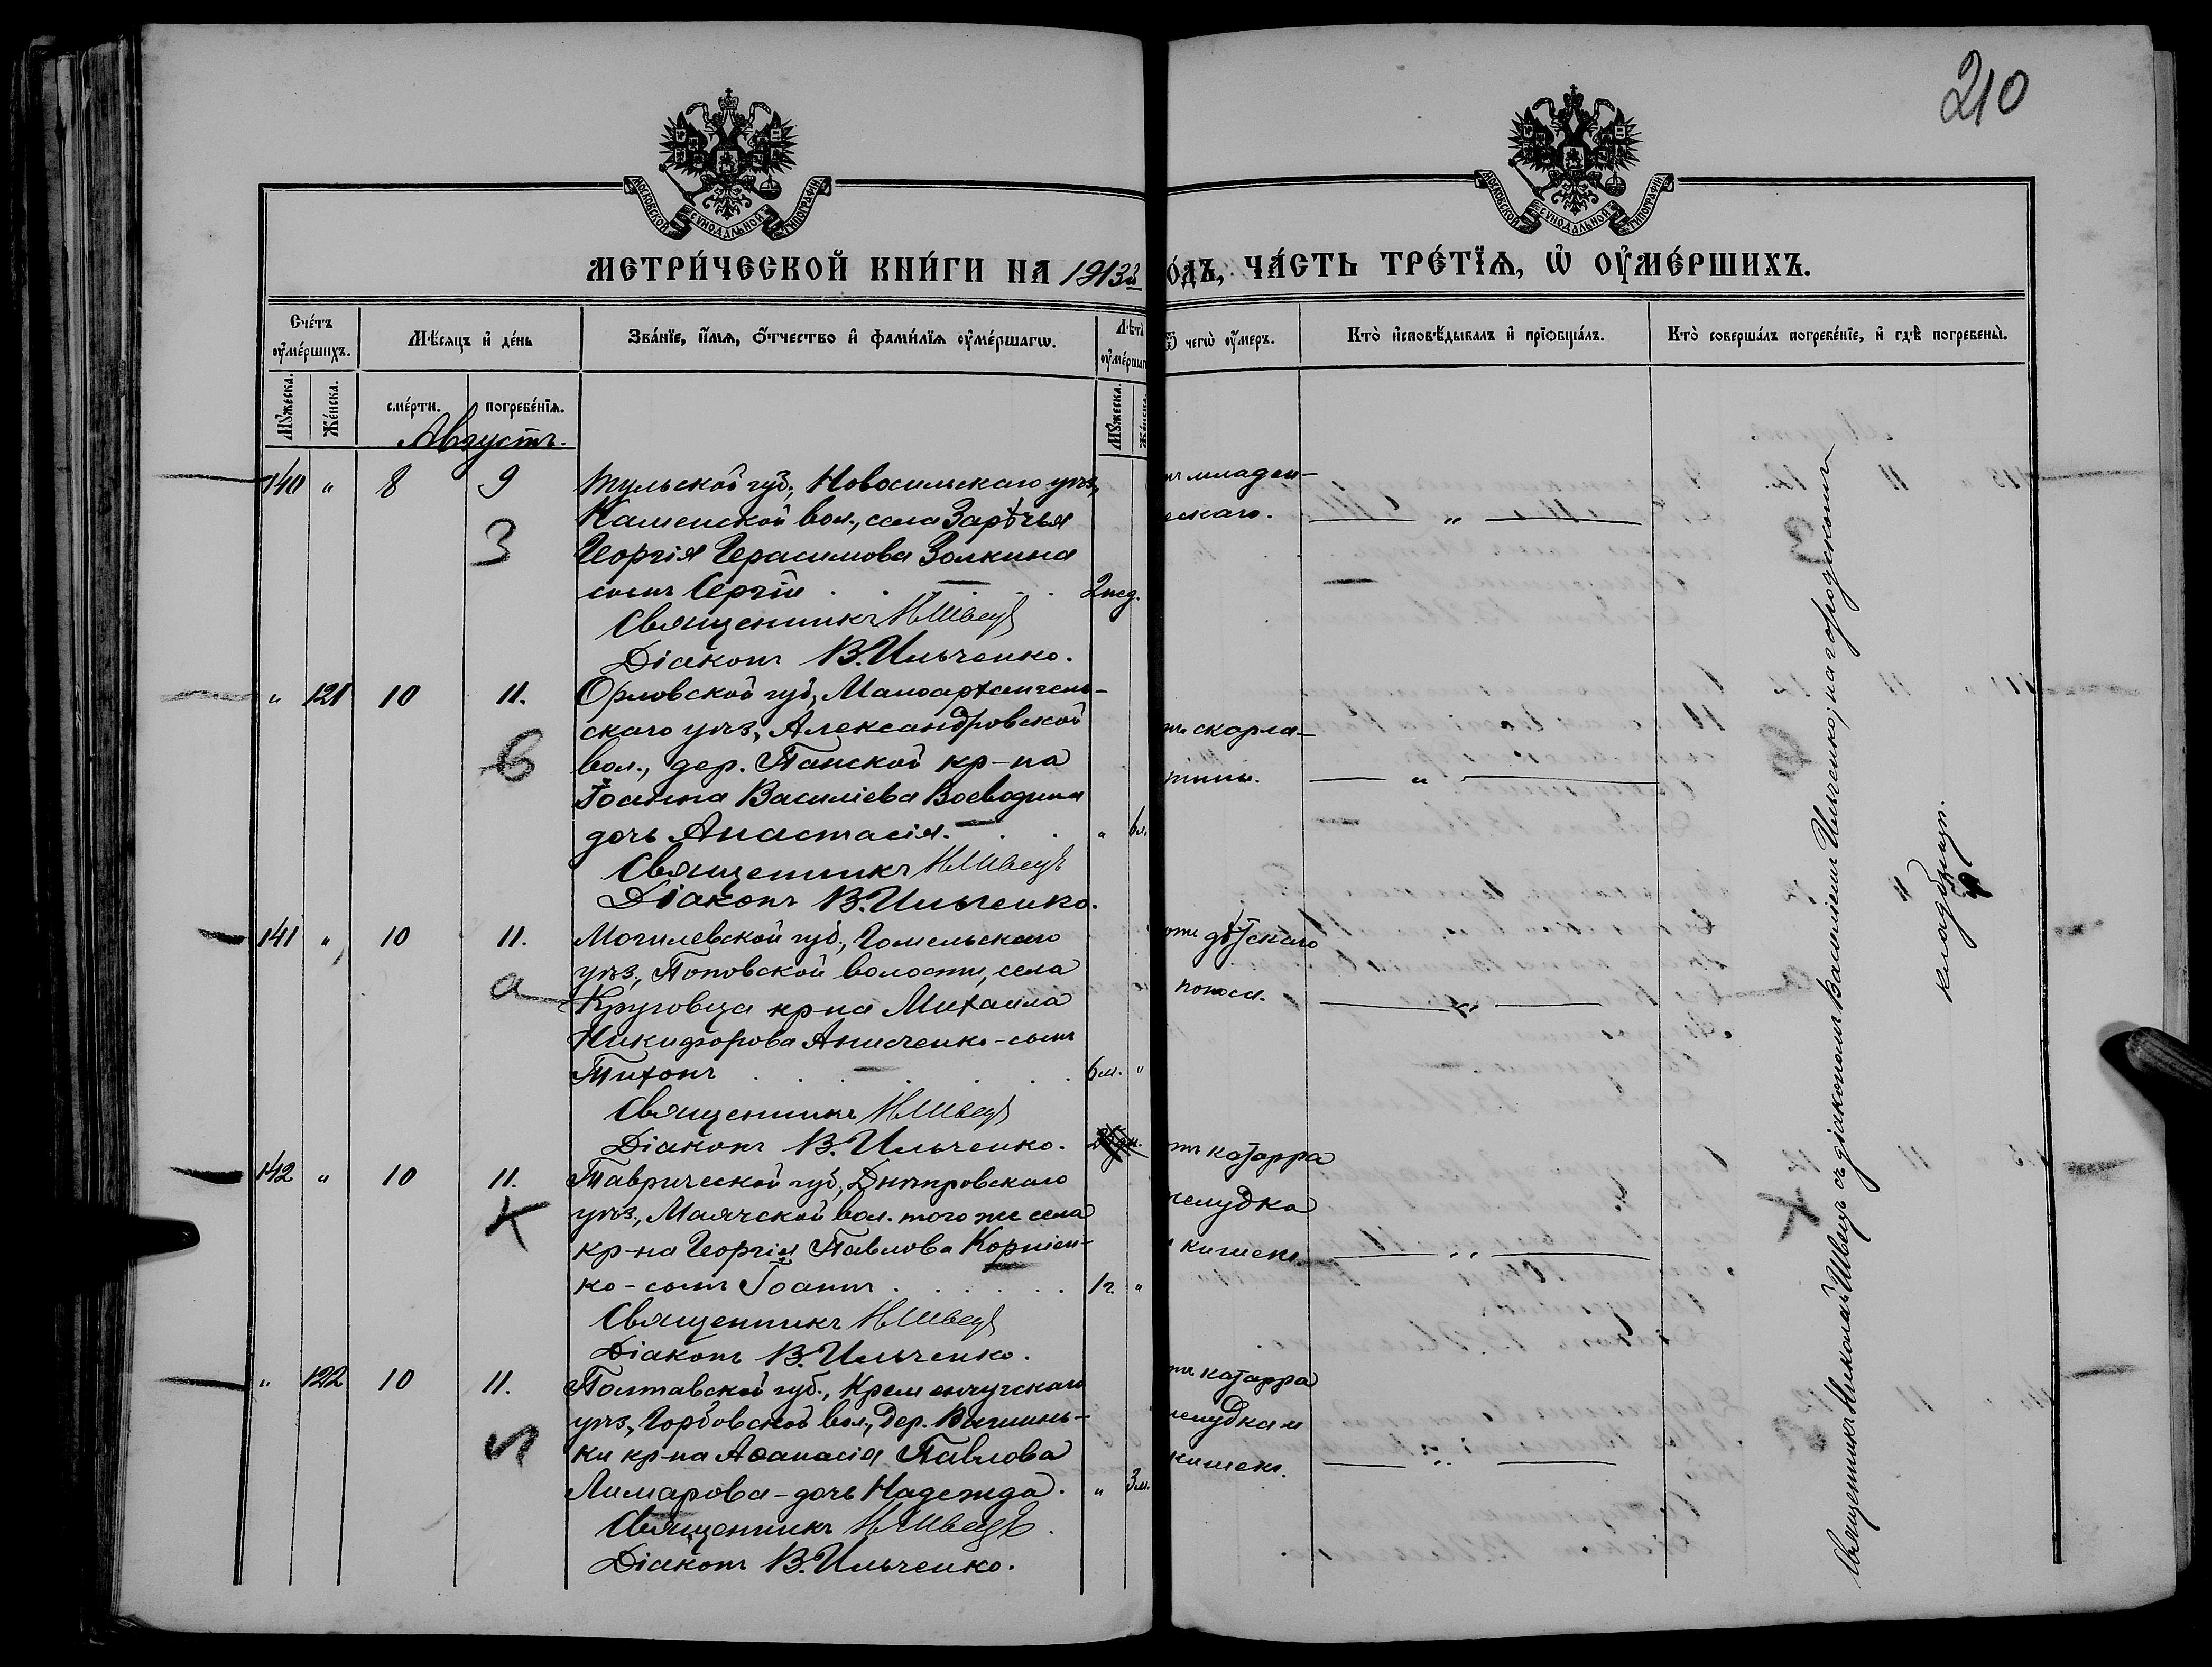 210
МОСКОВСКОЙ СУНОДАЛЬНОЙ ТИПОГРАФІИ
МОСКОВСКОЙ СУНОДАЛЬНОЙ ТИПОГРАФІИ
МЕТРИ́ЧЕСКОЙ КНИ́ГИ НА 1913й
О́ДЪ, ЧА́СТЬ ТРЕ́ТЇѦ, Ѡ҆ ОУ҆МЕ́РШИХЪ.
Сче́тъ оу҆ме́ршихъ.
Мѣ́сяцъ и҆ де́нь
Зва́нїе, и҆́мѧ, ѻ҆́тчество и҆ фами́лїѧ оу҆ме́ршагѡ.
Лѣ́тъ оу҆ме́ршаг
Ѿ чегѡ̀ оу҆́меръ.
Кто̀ и҆сповѣ́дывалъ и҆ прїѡбща́лъ.
Кто̀ соверша́лъ погребе́нїе, и҆ гдѣ̀ погребены̀.
Мꙋ́жеска.
Же́нска.
сме́рти.
погребе́нїѧ.
Мꙋ́жеска.
Же́нска.
Августъ.
140 " 8 9 Тульской губ., Новосильскаго уѣз.,
Каменской вол., села Зарѣчья
З Георгія Герасимова Золкина
сынъ Сергій . . . . 2 нед.
Священникъ Н Швецъ
Діаконъ В. Ильченко.
ъ младен-
ескаго. — " —
" 121 10 11. Орловской губ., Малоархангель-
скаго уѣз., Александровской
В вол., дер. Панской кр-на
Іоанна Василіева Воеводина
дочь Анастасія. . . " 6 л.
Священникъ Н Швецъ
Діаконъ В. Ильченко.
тъ скарла-
тины. — " —
141 " 10 11. Могилевской губ., Гомельскаго
уѣз., Поповской волости, села
а Круговца кр-на Михаила
Никифорова Анисченко - сынъ
Тихонъ . . . . . . 6 м. "
Священникъ Н Швецъ
Діаконъ В. Ильченко.
отъ дѣтскаго
поноса. — " —
142 " 10 11. Таврической губ., Днѣпровскаго
К уѣз., Маячской вол. того же села
кр-на Георгія Павлова Корніен-
ко - сынъ Іоаннъ . . . . . . 1 г. "
Священникъ Н Швецъ
Діаконъ В. Ильченко.
тъ катарра
желудка
и кишекъ — " —
" 122 10 11. Полтавской губ., Кременчугскаго
уѣз., Горбовской вол., дер.
ки кр-на Аѳанасія Павлова
Лимарова - дочь Надежда. " 3 м.
Священникъ Н Швецъ.
Діаконъ В. Ильченко.
тъ катарра
желудка и
кишекъ. — " —
Священникъ Николай Швецъ съ діакономъ Василіемъ Ильченко, на городскомъ
кладбищѣ.